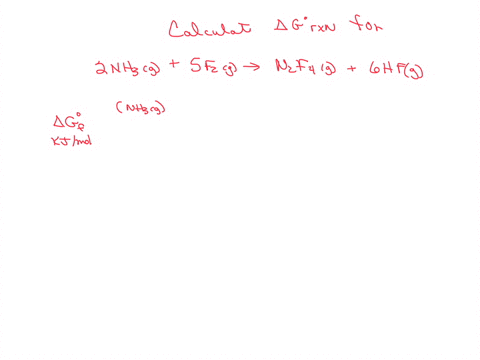 Calculat ΔG°rxn for
2NH₃(g) + 5F₂(g) → N₂F₄(g) + 6HF(g)
(NH₃(g)
ΔG°f
KJ/mol